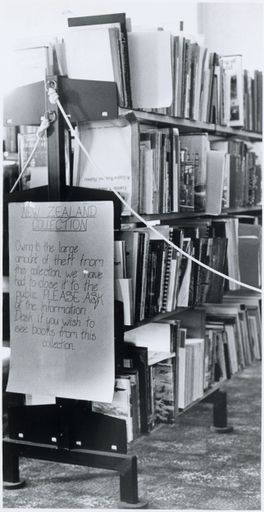 NEW ZEALAND
COLLECTION
Owing to the large
amount of theft from
this collection, we have
had to close it to the
public. PLEASE ASK
at the information
Desk if you wish to
see books from this
collection.